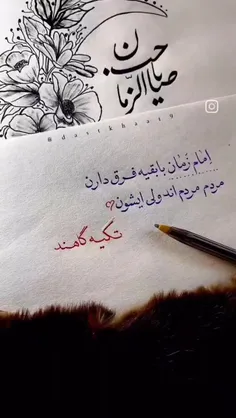 یا صاحب الزمان
@dastkhat9
امام زمان با بقیه فرق دارن
مردم مردم اند ولی ایشون
تکیه گاهند